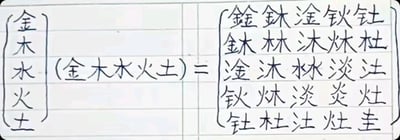 金 鍂 淦 钬 钍
木 林 沐 炑 杜
水 (金木水火土) = 淦 沐 沝 淡 汢
火 钬 炑 淡 炎 灶
土 钍 杜 汢 灶 圭